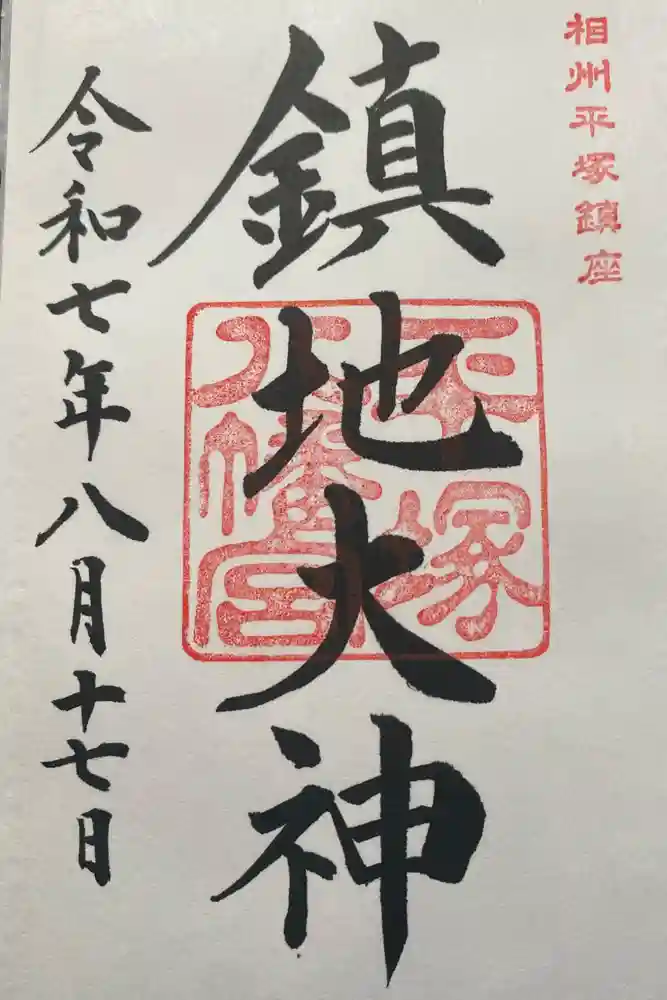 相州平塚鎮座
鎮地大神
平塚
八幡宮
令和七年八月十七日